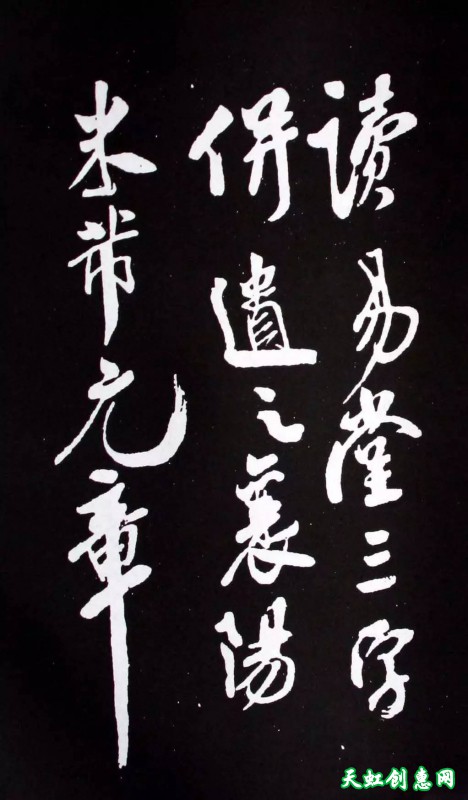 读易堂三字
併遺之襄陽
米芾元章
天虹创惠网